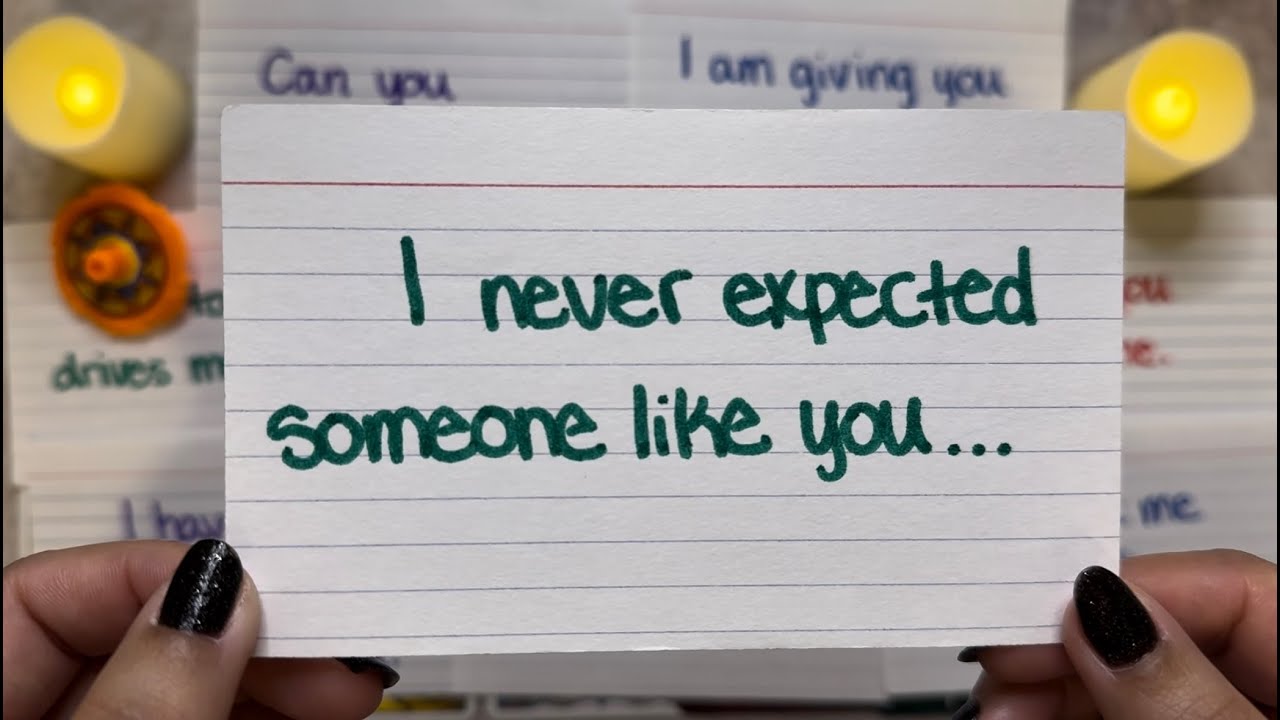 Can you
I am giving you
I never expected
someone like you...
drives
I hav
me